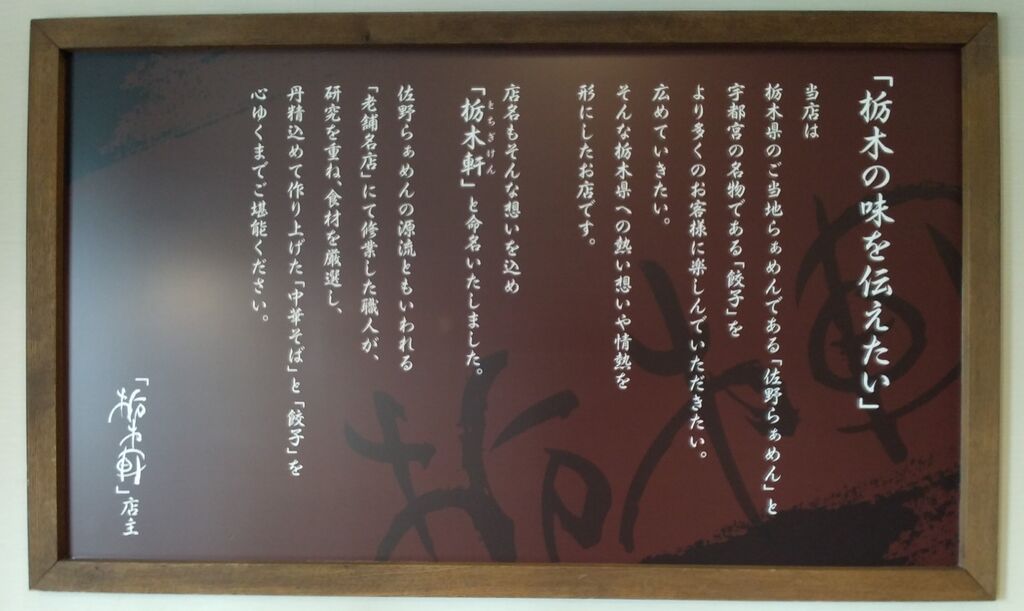 「栃木の味を伝えたい」
当店は
栃木県のご当地らぁめんである「佐野らぁめん」と
宇都宮の名物である「餃子」を
より多くのお客様に楽しんでいただきたい。
広めていきたい。
そんな栃木県への熱い想いや情熱を
形にしたお店です。
店名もそんな想いを込め
「栃木軒」と命名いたしました。
とちぎけん
佐野らぁめんの源流ともいわれる
「老舗名店」にて修業した職人が、
研究を重ね、食材を厳選し、
丹精込めて作り上げた「中華そば」と「餃子」を
心ゆくまでご堪能ください。
「栃木軒」店主
栃木軒